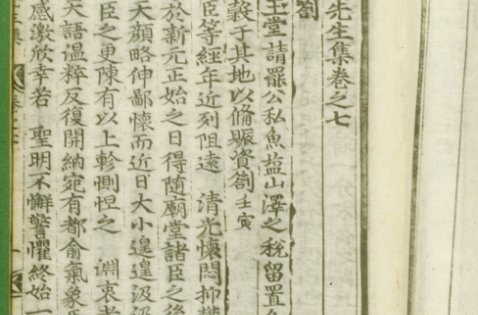 先生集卷之七
劄
玉堂請罷公私魚塩山澤之稅留置各
穀于其地以備賑資劄 壬寅
臣等經年近列阻遠 清光懷悶抑鬱
於新元正始之日得隨廟堂諸臣之後
天顔略伸鄙懷而近日大小遑遑汲汲
臣之更陳有以上軫惻怛之 淵衷者
天語溫粹反復開納宛有都俞氣象
感激欣幸若 聖明不懈警懼終始一